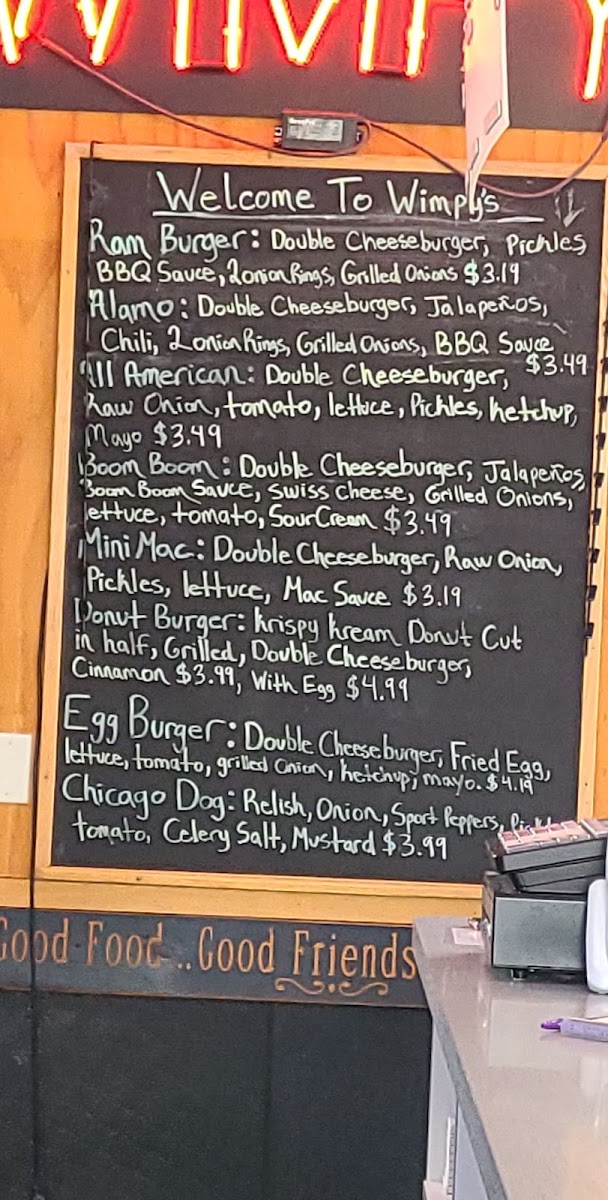 WIMPY
Welcome To Wimpy's
Ram Burger: Double Cheeseburger, Pickles
BBQ Sauce, 2 onion Rings, Grilled Onions $3.19
Alamo: Double Cheeseburger, Jalapeños,
Chili, 2 onion Rings, Grilled Onions, BBQ Sauce
$3.49
All American: Double Cheeseburger,
Raw Onion, tomato, lettuce, Pickles, ketchup,
Mayo $3.49
Boom Boom: Double Cheeseburger, Jalapeños,
Boom Boom Sauce, Swiss Cheese, Grilled Onions,
lettuce, tomato, Sour Cream $3.49
Mini Mac: Double Cheeseburger, Raw Onion,
Pickles, lettuce, Mac Sauce $3.19
Donut Burger: krispy kream Donut Cut
in half, Grilled, Double Cheeseburger,
Cinnamon $3.99, With Egg $4.99
Egg Burger: Double Cheeseburger, Fried Egg,
lettuce, tomato, grilled Onion, ketchup, mayo. $4.19
Chicago Dog: Relish, Onion, Sport Peppers,
tomato, Celery Salt, Mustard $3.99
Good Food...Good Friends